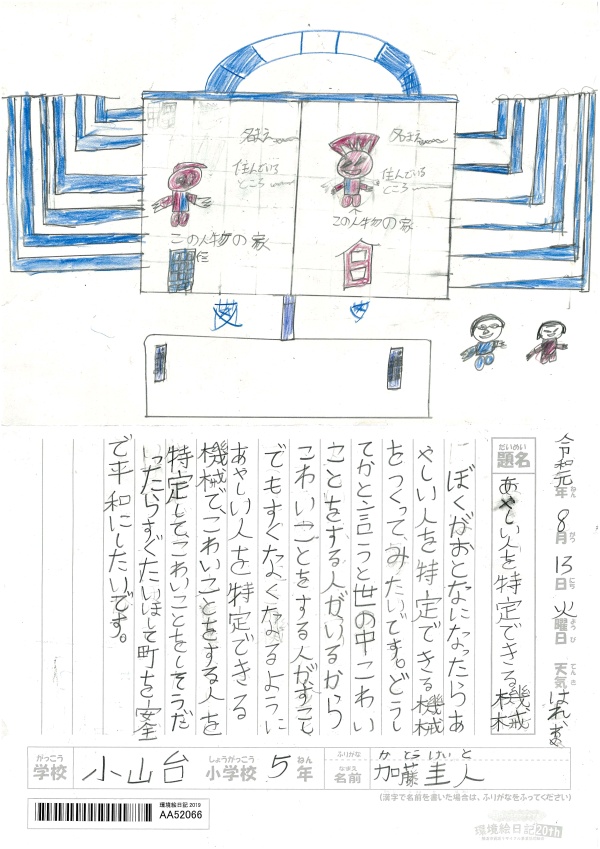 名まえ
住んでいる
ところ
この人物の家
名まえ
住んでいる
ところ
この人物の家
令和元年 8月 13日 火曜日 天気 はれ
ねん がつ にち ようび てんき
だいめい
題名 あやしい人を特定できる機械
ぼくがおとなになったらあ
やしい人を特定できる機械
をつくってみたいです。どうし
てかと言うと世の中こわい
ことをする人がいるから
こわいことをする人がすこし
でもすくなくなるように
あやしい人を特定できる
機械で、こわいことをする人を
特定して、こわいことをしそうだ
ったらすぐたいほして町を安全
で平和にしたいです。
がっこう しょうがっこう ねん
学校 小山台 小学校 5年
ふりがな かとうけいと
なまえ
名前 加藤圭人
(漢字で名前を書いた場合は、ふりがなをふってください)
環境絵日記 2019
AA52066
環境絵日記 20th